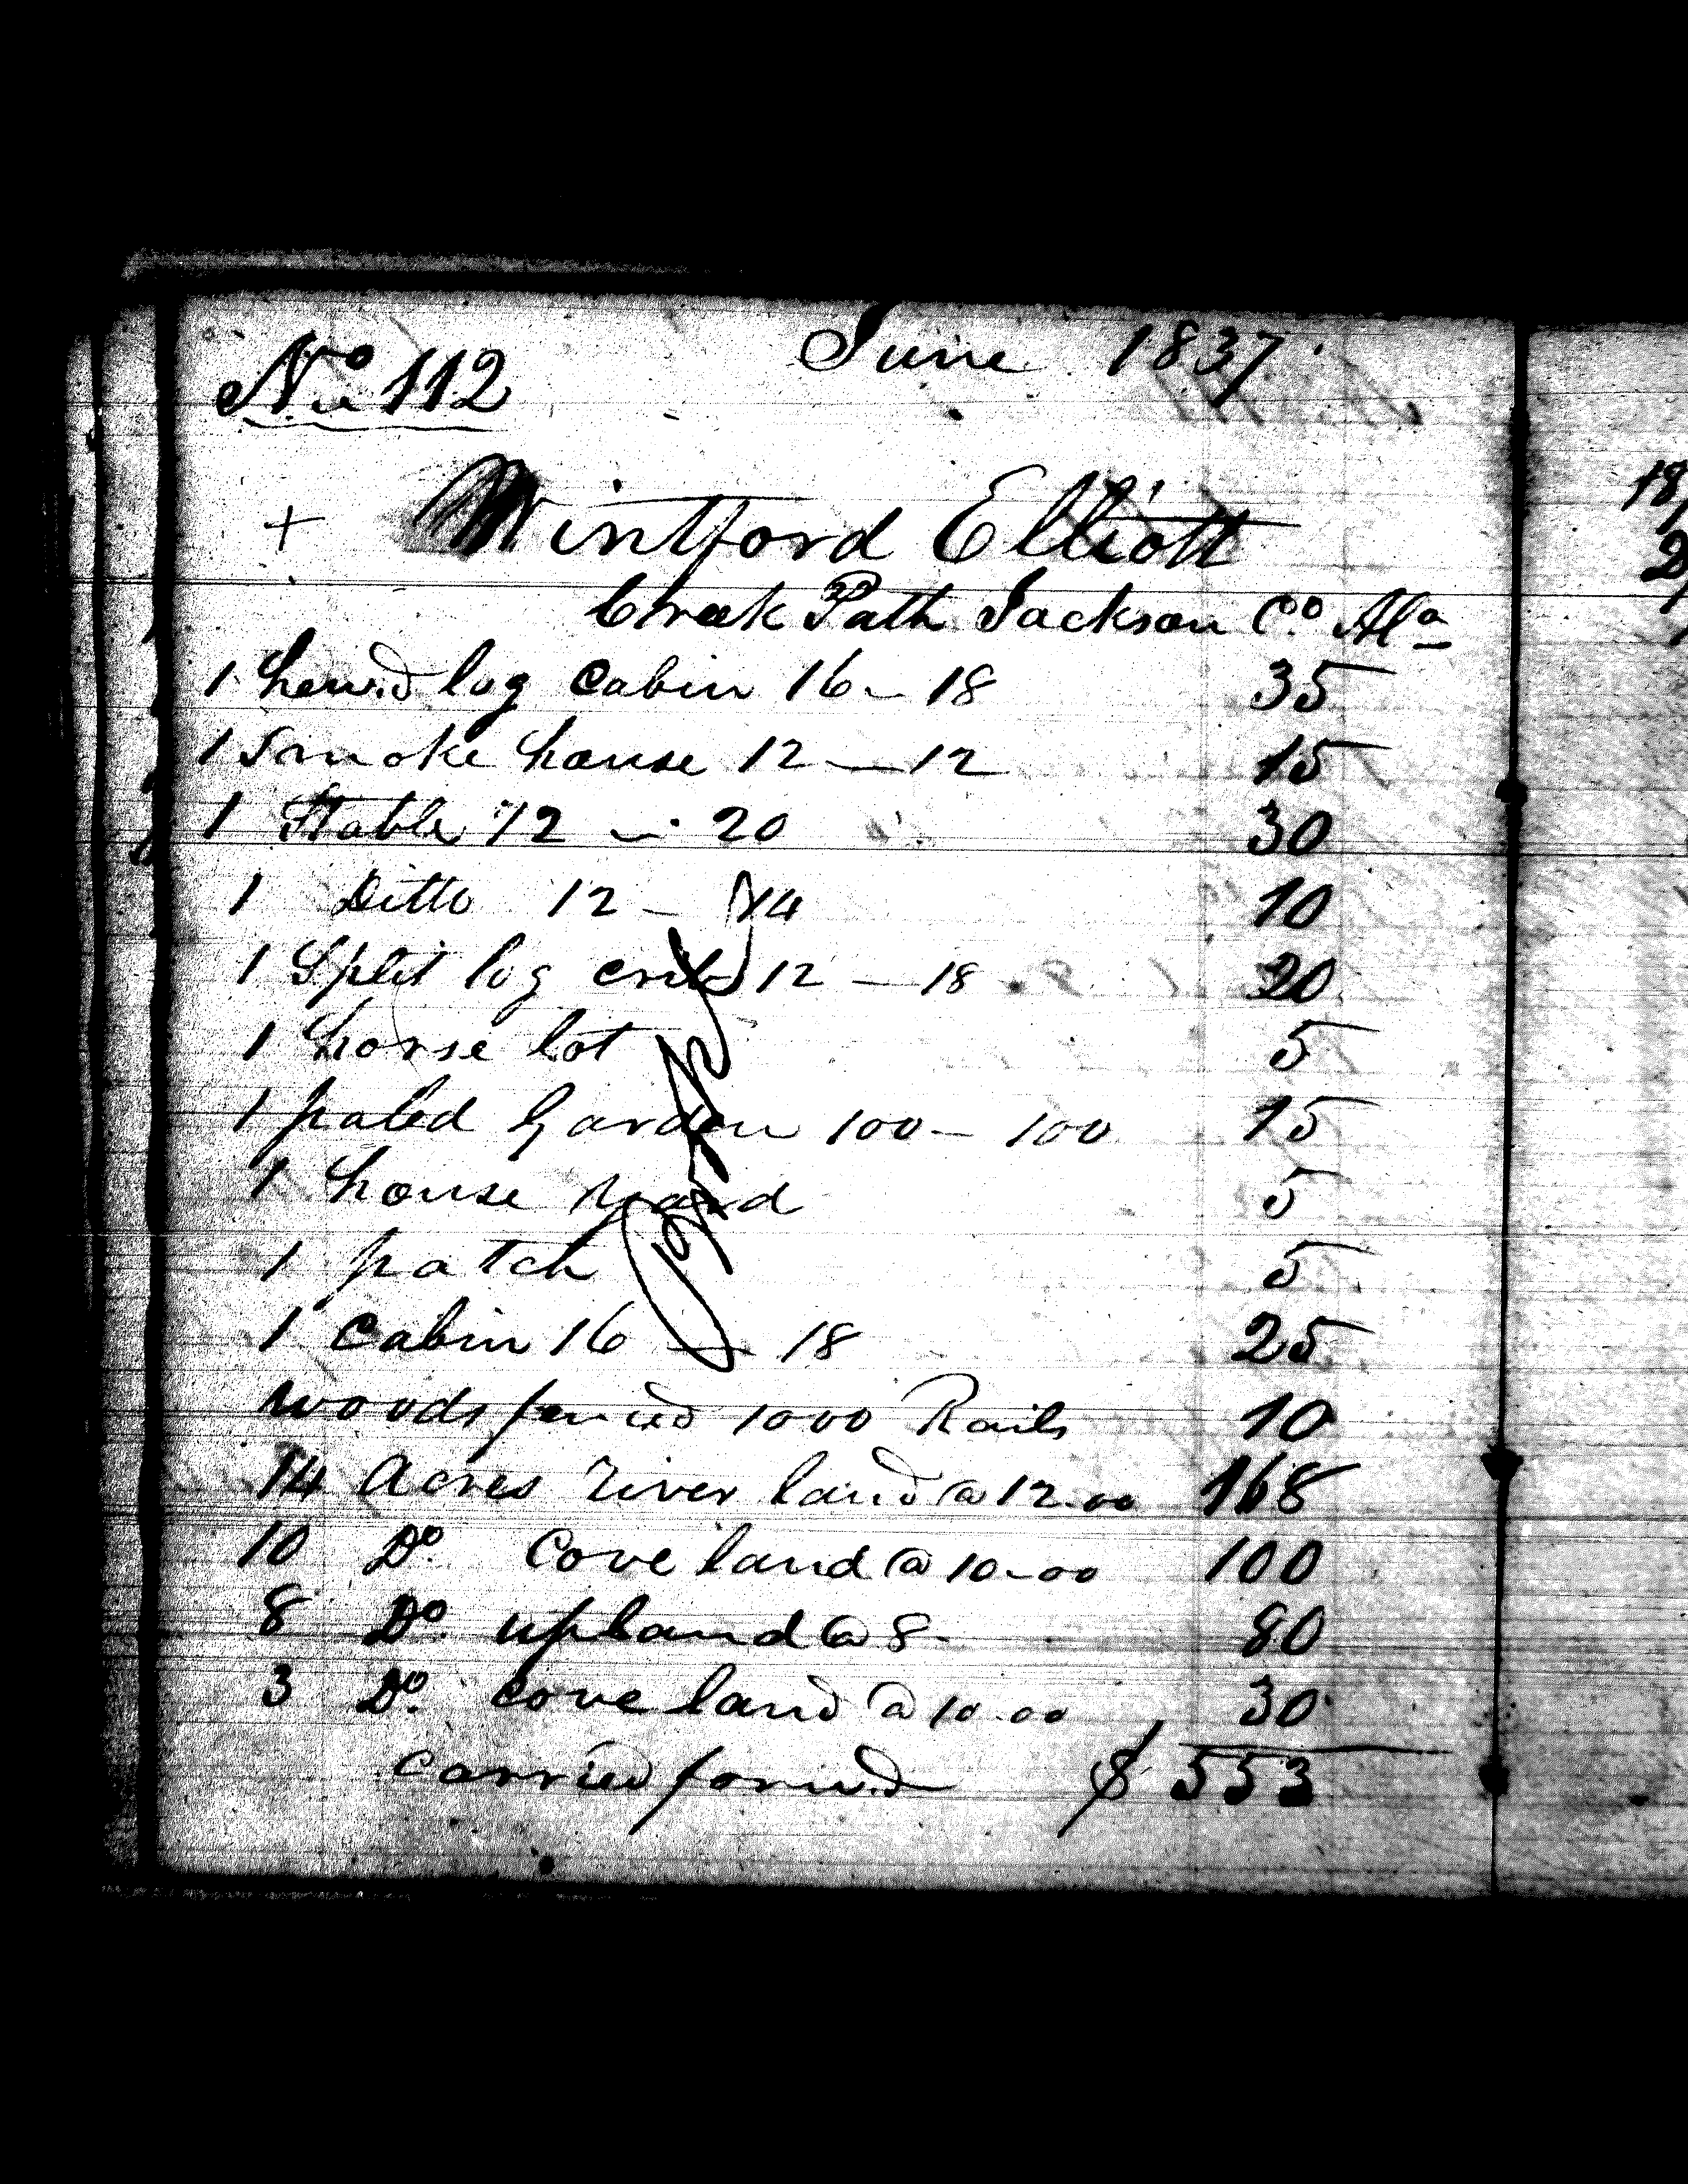 No 112
June 1837
+ Wintford Elliott
Creek Path Jackson Co. Ala
1 hew.d log Cabin 16 - 18 35
1 Smoke house 12 - 12 15
1 Stable 12 - 20 30
1 Ditto 12 - 14 10
1 Split log crib 12 - 18 20
1 horse lot 5
1 paled Garden 100 - 100 15
1 house yard 5
1 patch 5
1 Cabin 16 - 18 25
woods fenced 1000 Rails 10
14 Acres River land @ 12.00 168
10 Do. Cove land @ 10-00 100
8 Do. upland @ 8 80
3 Do. Cove land @ 10.00 30
Carried forw.d $ 553